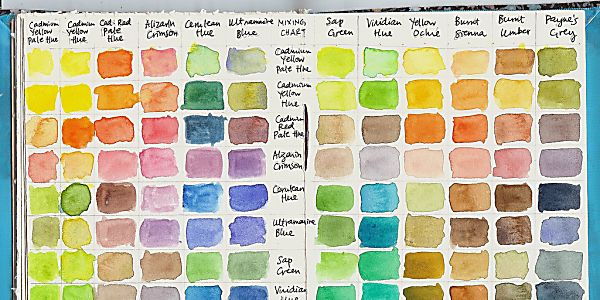 Cadmium
Yellow
Pale Hue
Cadmium
Yellow
Hue
Cad. Red
Pale
Hue
Alizarin
Crimson
Cerulean
Hue
Ultramarine
Blue
MIXING
CHART
Sap
Green
Viridian
Hue
Yellow
Ochre
Burnt
Sienna
Burnt
Umber
Payne's
Grey
Cadmium
Yellow
Pale Hue
Cadmium
Yellow
Hue
Cadmium
Red
Pale Hue
Alizarin
Crimson
Cerulean
Hue
Ultramarine
Blue
Sap
Green
Viridian
Hue